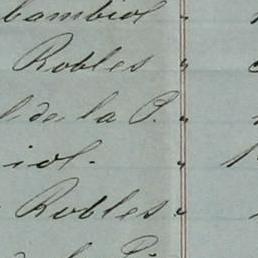 bambiol "
Robles "
l de la P. "
iol. "
Robles. "